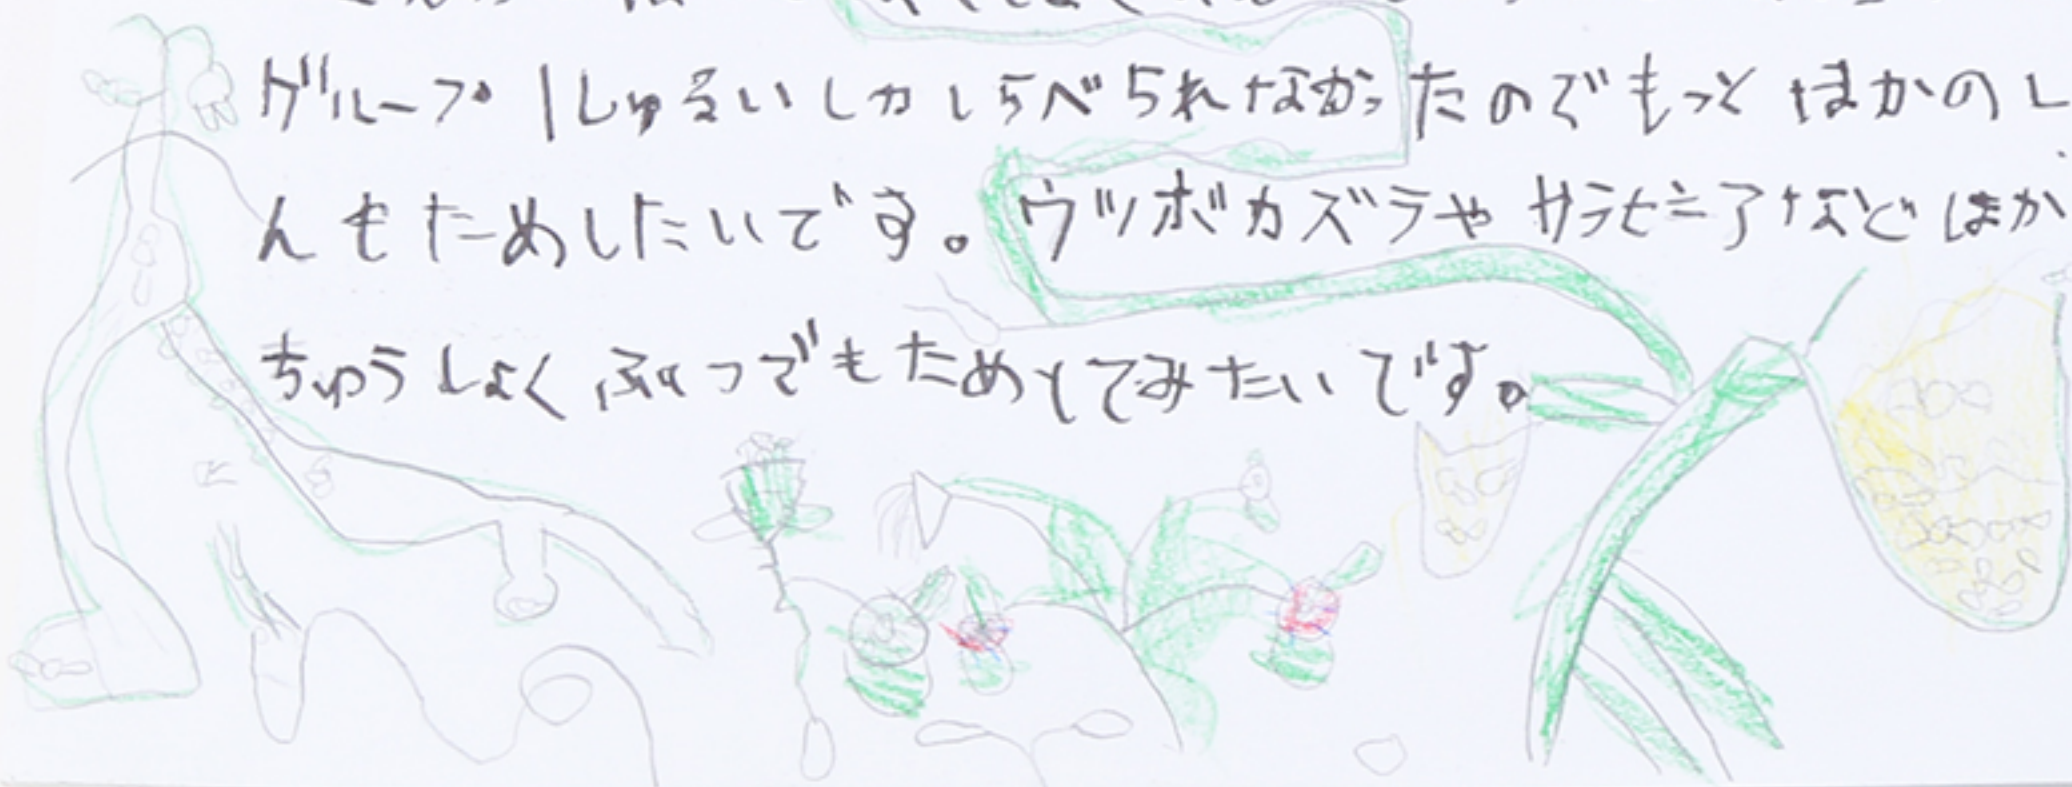 グループ1しゅるいしかしらべられなかったのでもっとほかのし
んもためしたいです。ウツボカズラやサラセニアなどほか
ちゅうしょくぶつでもためしてみたいです。